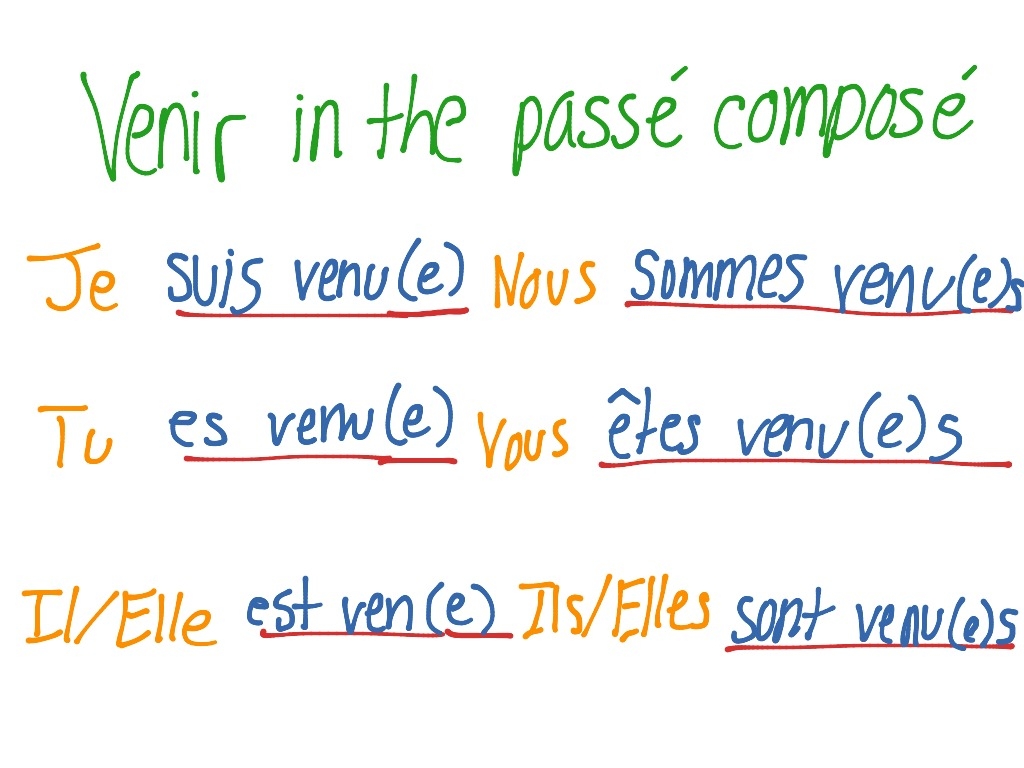 Venir in the passé composé
Je suis venu(e) Nous sommes venu(e)s
Tu es venu(e) Vous êtes venu(e)s
Il/Elle est ven(e) Ils/Elles sont venu(e)s